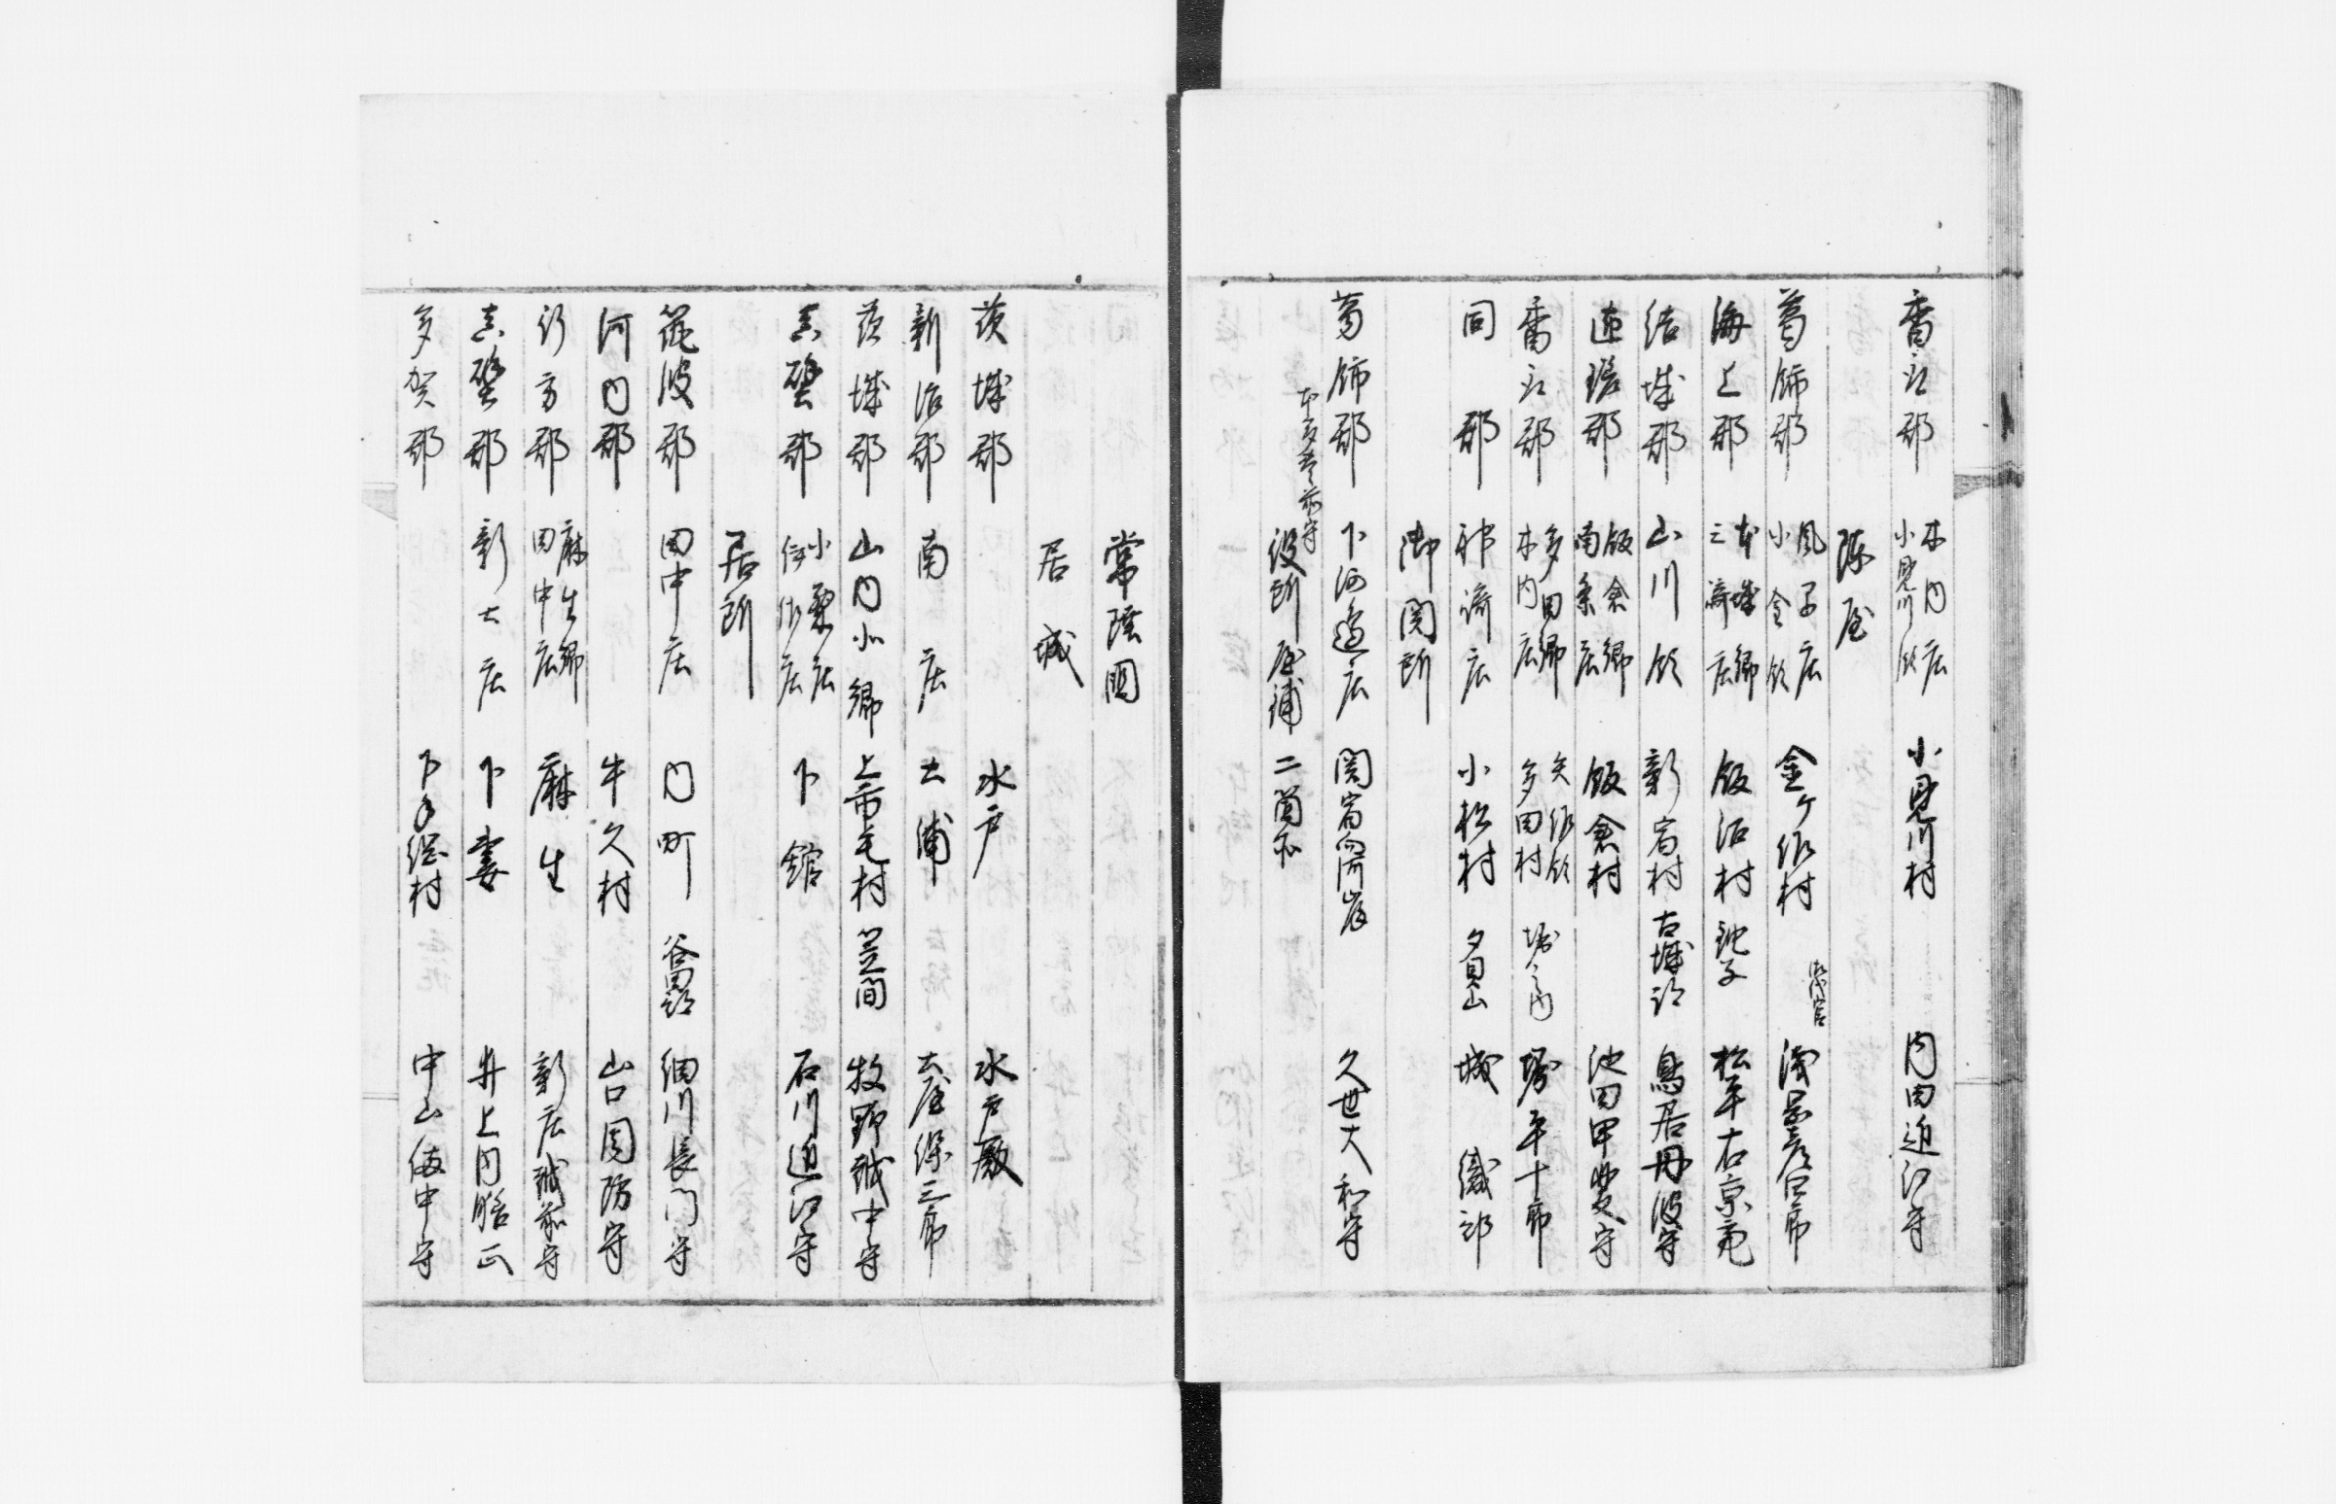 香取郡 木内庄 小見川領 小見川村 内田近江守
陣屋
葛飾郡 風早庄 小金領 金ケ作村 御代官
海上郡 本城郷 三崎庄 飯沼村 銚子 松平右京亮
結城郡 山川領 新宿村 古城跡 鳥居丹波守
匝瑳郡 飯倉郷 南条庄 飯倉村 池田甲斐守
香取郡 多田郷 木内庄 矢作領 多田村 堀之内 平十郎
同郡 神崎庄 小松村 夕貝山 城織部
御関所
葛飾郡 下河邊庄 関宿向河岸 久世大和守
役所屋浦 二箇所
常陸国
居城
茨城郡 水戸 水戸殿
新治郡 南庄 土浦 土屋保三郎
茨城郡 山内小郷 上市毛村 笠間 牧野越中守
真壁郡 小栗庄 伊佐庄 下館 石川近江守
居所
筑波郡 田中庄 内町 谷田部 細川長門守
河内郡 牛久村 山口周防守
行方郡 麻生郷 田中庄 麻生 新庄越前守
真壁郡 新土庄 下妻 井上内膳正
多賀郡 下手縄村 中山備中守